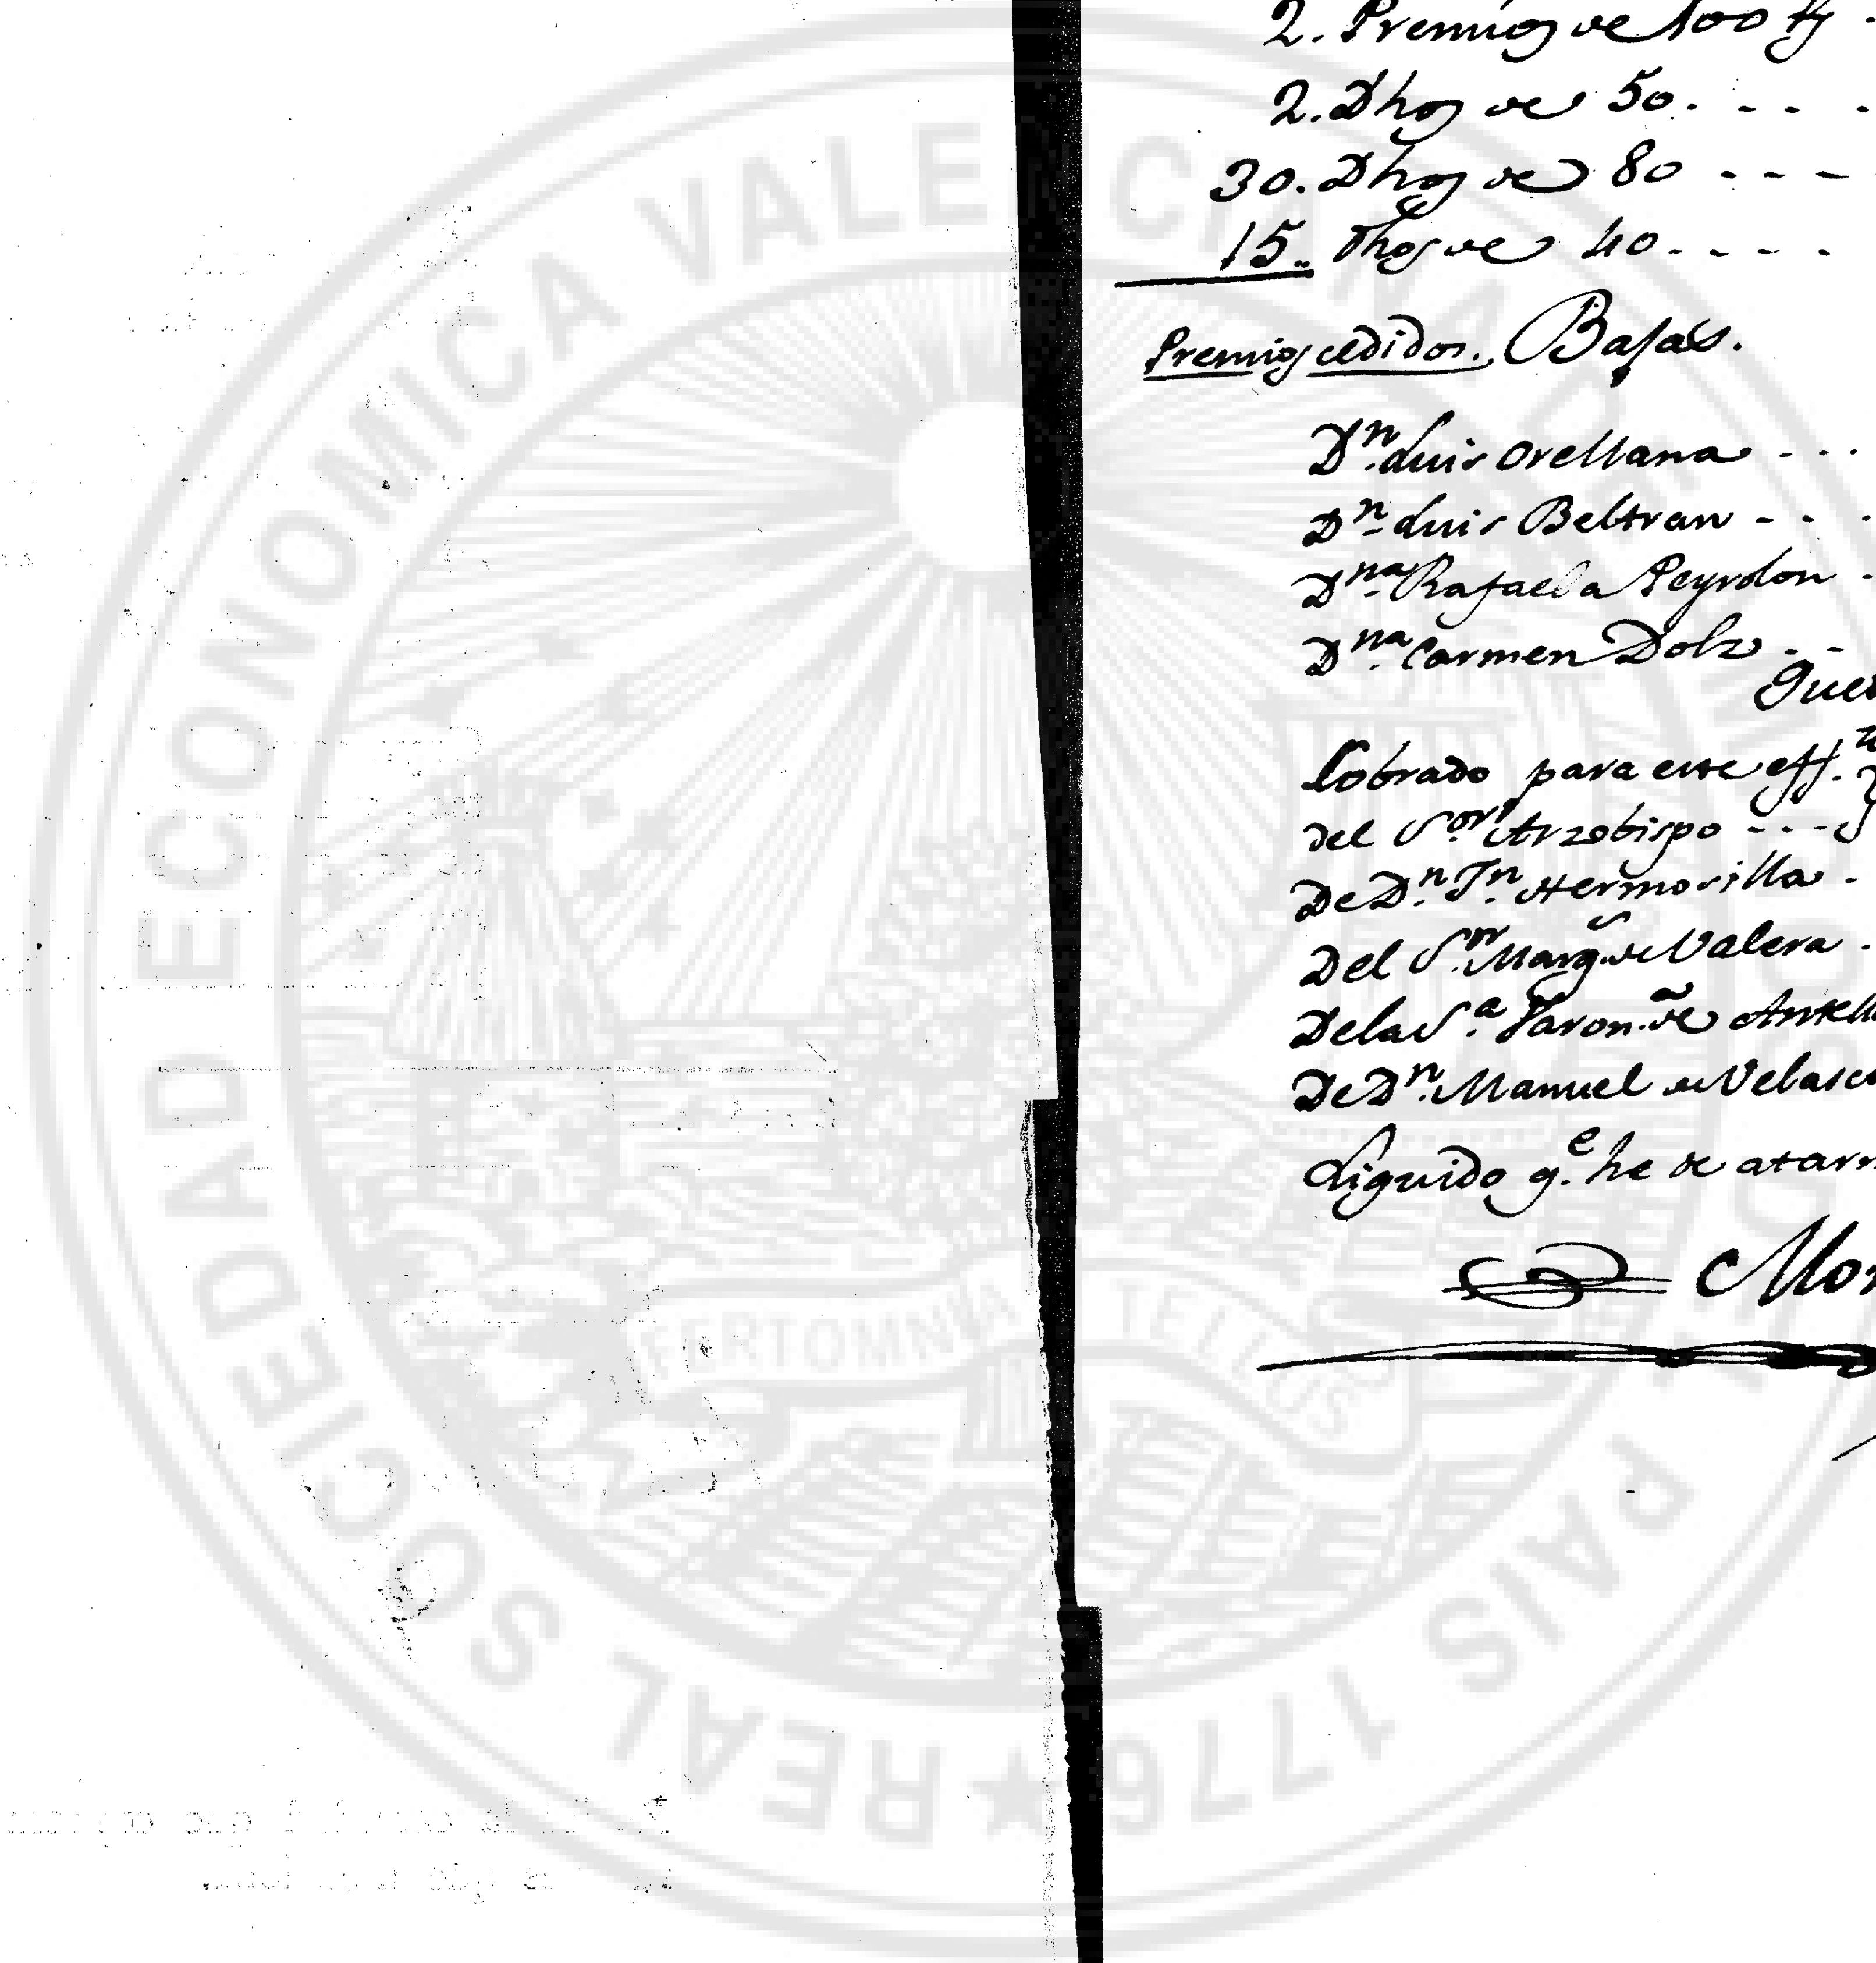 2. Premios de 100 
2. Dhos de 50. - - -
30. Dhos de 80 - - -
15.. Dhos de 40. - - - -
Premios cedidos. Bajas.
Dn. Luis Orellana - - -
Dn. Luis Beltran - - -
Dna. Rafaela Peyrolon -
Dna. Carmen Dolz - -
Cobrado para este eff.
del Sor. Arzobispo - - -
De Dn. Jn. Hermosilla -
Del Sor. Marqs. de Valera -
De la Sa. Varon.a de Antella
De Dn. Manuel de Velasco
Liquido q.e he de
SOCIEDAD ECONOMICA VALENCIANA
PAIS 1776 ★ REAL
FERT OMNIA TELLUS